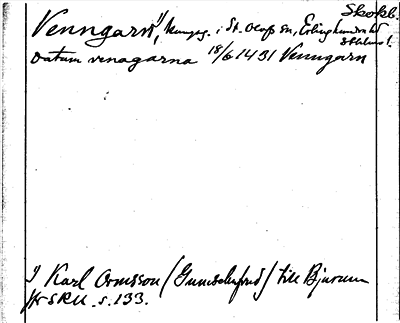 Skokb.
Venngarn 1), kungsg. i St. Olofs sn, Erlinghundra hd
Sthlms l.
Datum venagarna 18/6 1431 Venngarn
1 Karl Ormsson (Gumsehufvud) till Bjurum
fr SRU s. 133.